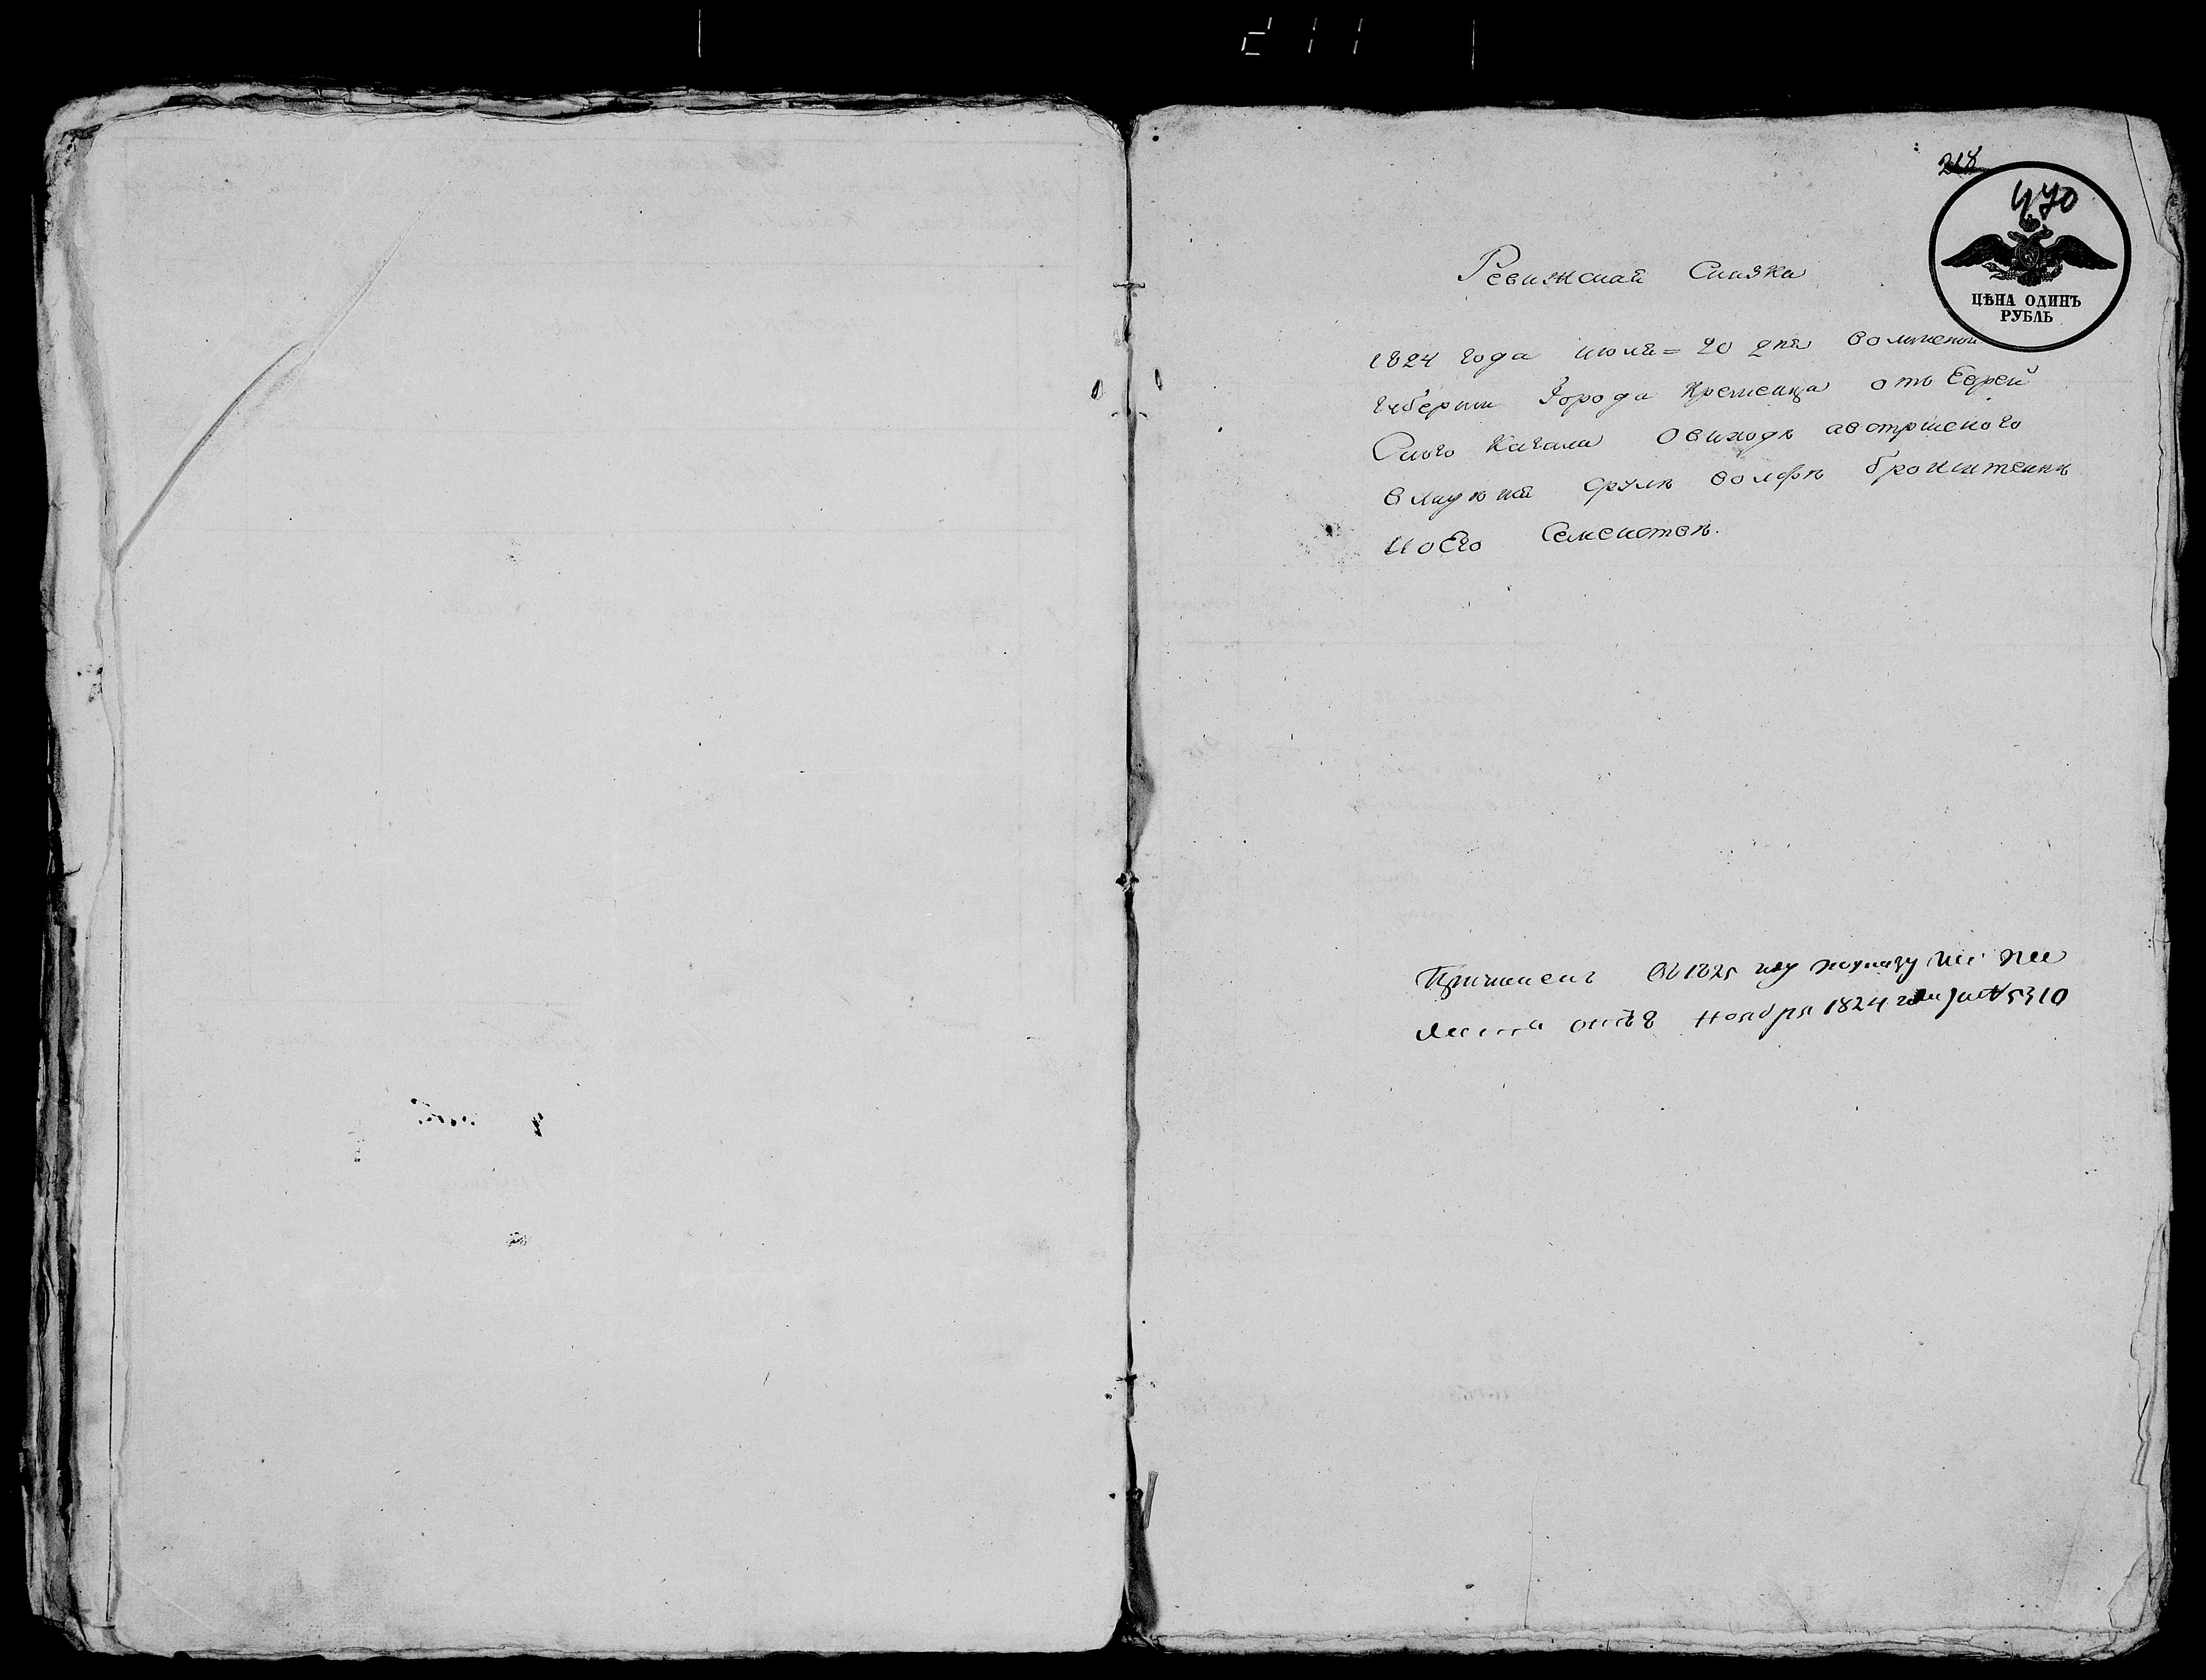 211
218
470
ЦѢНА ОДИНЪ
РУБЛЬ
Ревижская Сказка
1824 года июля = 20 дня волынской
губернии Города Кременца отъ Еврей
Скаго Кагала овиходѣ австрийского
Срулѣ волфѣ бронштеинѣ
и о Его Семействѣ.
Причислен въ 1825 году по указу
8 ноября 1824 года за № 5310